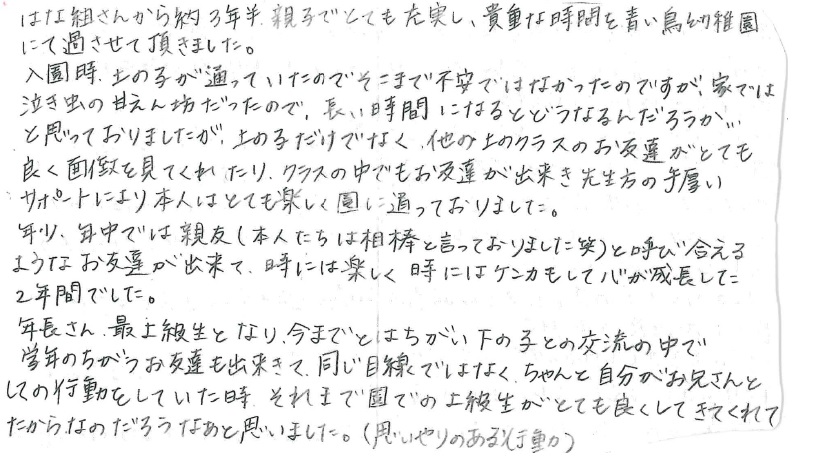 はな組さんから約3年半 親子でとても充実し、貴重な時間を青い鳥幼稚園
にて過させて頂きました。
入園時、上の子が通っていたのでそこまで不安ではなかったのですが、家では
泣き虫の甘えん坊だったので、長い時間になるとどうなるんだろうか…
と思っておりましたが、上の子だけでなく、他の上のクラスのお友達がとても
良く面倒を見てくれたり、クラスの中でもお友達が出来き先生方の手厚い
サポートにより本人はとても楽しく園に通っておりました。
年少、年中では親友(本人たちは相棒と言っておりました笑)と呼び合える
ようなお友達が出来て、時には楽しく時にはケンカもして心が成長した
2年間でした。
年長さん、最上級生となり、今までとはちがい下の子との交流の中で
学年のちがうお友達も出来きて、同じ目線ではなく、ちゃんと自分がお兄さんと
しての行動をしていた時、それまで園での上級生がとても良くしてきてくれて
たからなのだろうなあと思いました。(思いやりのある行動力)